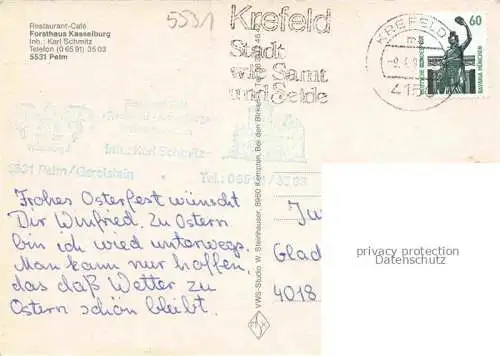 Restaurant-Café
Forsthaus Kasselburg
Inh.: Karl Schmitz
Telefon (0 65 91) 35 03
5531 Pelm
5531
Krefeld
Stadt
wie Samt
und Seide
KREFELD
415
60
DEUTSCHE BUNDESPOST
BAVARIA MÜNCHEN
Inh.: Karl Schmitz
5531 Pelm/Gerolstein
Tel.: 06591/3503
Frohes Osterfest wünscht
Dir Winfried. Zu Ostern
bin ich wied unterwegs.
Man kann nur hoffen,
das daß Wetter zu
Ostern schön bleibt.
VWS-Studio W. Steinhauser, 8960 Kempten, Bei den Birken
Glad
4018
privacy protection
Datenschutz